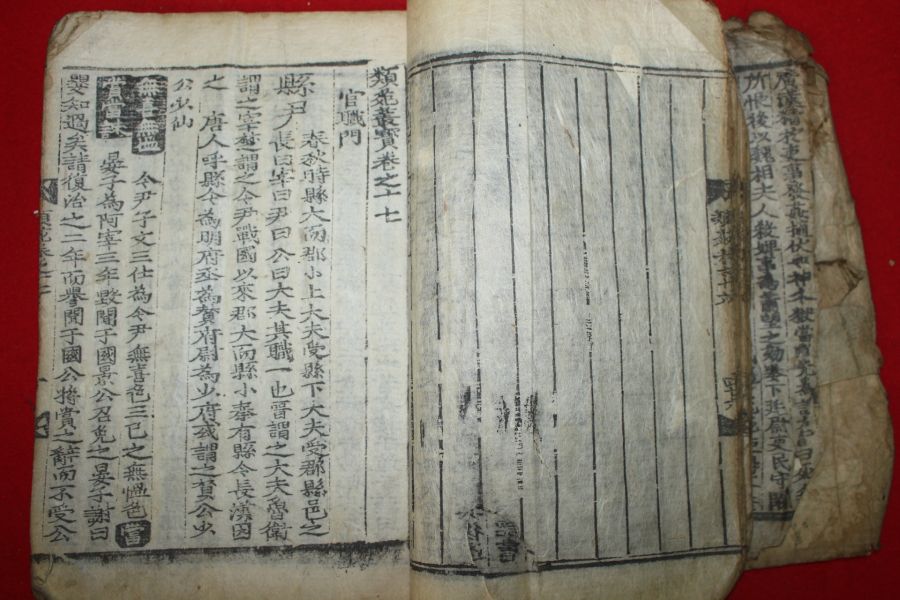 後以魏相夫人殺婢事為蕭望之劾奏下廷尉吏民守闕
類苑叢寶卷之十七
官職門
縣尹 春秋時縣大而郡小上大夫受縣下大夫受郡縣邑之
長曰宰曰尹曰公曰大夫其職一也晉謂之大夫魯衛
謂之宰楚謂之令尹戰國以來郡大而縣小秦有縣令長漢因
之 唐人呼縣令為明府丞為贊府尉為少府或謂之贊公少
公少仙
無喜無慍 令尹子文三仕為令尹無喜色三已之無慍色 當
賞當誅 晏子為阿宰三年毀聞于國景公召免之晏子謝曰
嬰知過矣請復治之二年而譽聞于國公將賞之辭而不受公